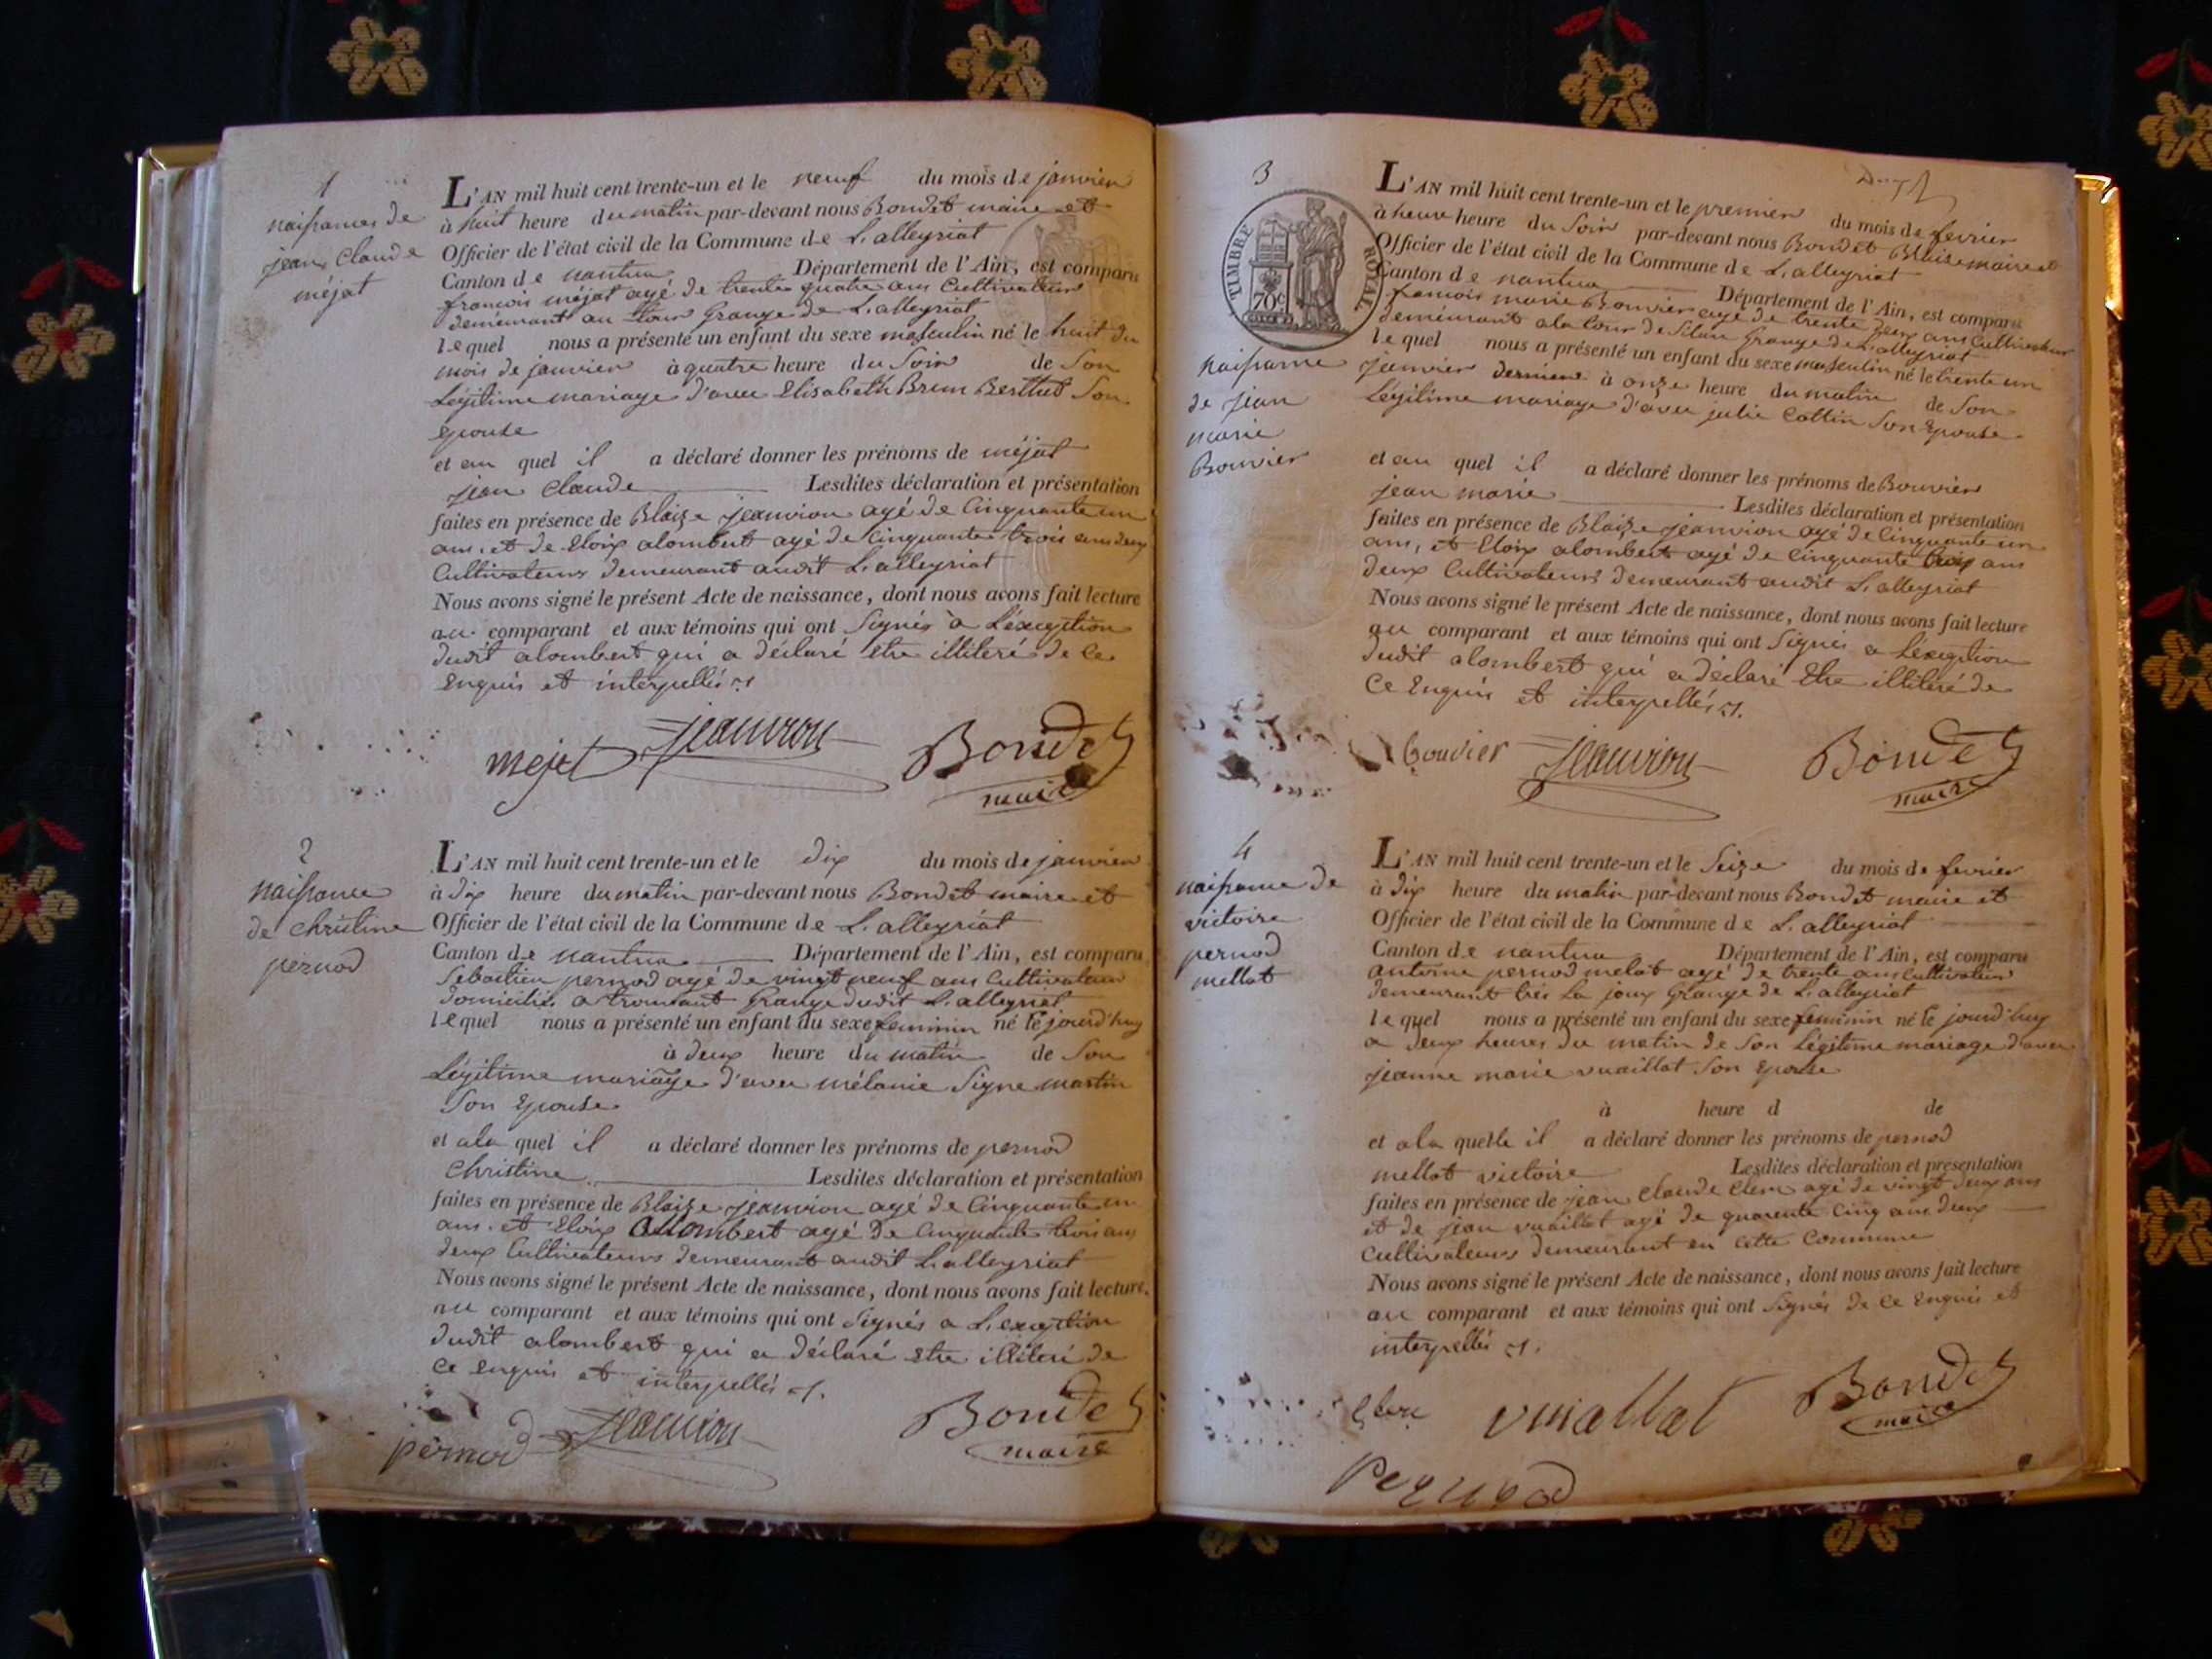 1
naissances de
jean Claude
méjat
L'AN mil huit cent trente-un et le neuf du mois de janvier
à huit heure du matin par-devant nous Bondet maire et
Officier de l'état civil de la Commune de L'alleyriat
Canton de nantua Département de l'Ain, est comparu
francois méjat agé de trente quatre ans Cultivateur
demeurant au Grange de L'alleyriat
lequel nous a présenté un enfant du sexe masculin né le huit du
mois de janvier à quatre heure du Soir de Son
Légitime mariage d'avec Elisabeth Brun Berthet Son
epouse
et au quel il a déclaré donner les prénoms de méjat
jean Claude Lesdites déclaration et présentation
faites en présence de Blaize jeanvion agé de Cinquante un
ans. et de Eloix alombert agé de Cinquante trois ans deux
Cultivateurs demeurant audit L'alleyriat
Nous avons signé le présent Acte de naissance, dont nous avons fait lecture
au comparant et aux témoins qui ont Signés à L'exception
dudit alombert qui a déclaré etre illiteré de ce
Enquis et interpellés
mejat jeanvion Bondet
maire
2
naissance
de christine
pernod
L'AN mil huit cent trente-un et le dix du mois de janvier
à dix heure du matin par-devant nous Bondet maire et
Officier de l'état civil de la Commune de L'alleyriat
Canton de nantua Département de l'Ain, est comparu
Sébastien pernod agé de vingt neuf ans Cultivateur
domicilié a Grange dudit L'alleyriat
lequel nous a présenté un enfant du sexe feminin né le jourd'huy
à deux heure du matin de Son
Légitime mariage d'avec mélanie Signe martin
Son Epouse
et ala quel il a déclaré donner les prénoms de pernod
Christine Lesdites déclaration et présentation
faites en présence de Blaize jeanvion agé de Cinquante un
ans. et Eloix Allombert agé de Cinquante trois ans
deux Cultivateurs demeurant audit L'alleyriat
Nous avons signé le présent Acte de naissance, dont nous avons fait lecture
au comparant et aux témoins qui ont Signés a L'exception
dudit alombert qui a déclaré etre illiteré de
ce enquis et interpellés
pernod jeanvion Bondet
maire
3
TIMBRE ROYAL
70c
naissance
de jean
marie
Bouvier
L'AN mil huit cent trente-un et le premier du mois de fevrier
à heure du Soir par-devant nous Bondet Blaise maire et
Officier de l'état civil de la Commune de L'alleyriat
Canton de nantua Département de l'Ain, est comparu
francois marie Bouvier agé de trente deux ans Cultivateur
demeurant ala Cour de Silan Grange de L'alleyriat
lequel nous a présenté un enfant du sexe masculin né le trente un
janvier dernier à onze heure du matin de Son
Légitime mariage d'avec julie Cottin Son Epouse
et au quel il a déclaré donner les prénoms de Bouvier
jean marie Lesdites déclaration et présentation
faites en présence de Blaize jeanvion agé de Cinquante un
ans, et Eloix alombert agé de Cinquante trois ans
deux Cultivateurs demeurant audit L'alleyriat
Nous avons signé le présent Acte de naissance, dont nous avons fait lecture
au comparant et aux témoins qui ont Signés a L'exception
dudit alombert qui a déclaré Etre illiteré de
Ce Enquis et interpellés
bouvier jeanvion Bondet
maire
4
naissance de
victoire
pernod
mellat
L'AN mil huit cent trente-un et le Seize du mois de fevrier
à dix heure du matin par-devant nous Bondet maire et
Officier de l'état civil de la Commune de L'alleyriat
Canton de nantua Département de l'Ain, est comparu
antoine pernod melat agé de trente ans Cultivateur
demeurant La joux Grange de L'alleyriat
lequel nous a présenté un enfant du sexe feminin né le jourd'huy
a deux heures du matin de Son Légitime mariage d'avec
jeanne marie vuaillat Son Epouse
à heure d de
et ala quelle il a déclaré donner les prénoms de pernod
mellat victoire Lesdites déclaration et présentation
faites en présence de jean Claude Clerc agé de vingt deux ans
et de jean vuaillat agé de quarente Cinq ans deux
Cultivateurs demeurant en cette Commune
Nous avons signé le présent Acte de naissance, dont nous avons fait lecture
au comparant et aux témoins qui ont Signés de ce Enquis et
interpellés
Clerc vuiallat Bondet
maire
Pernod